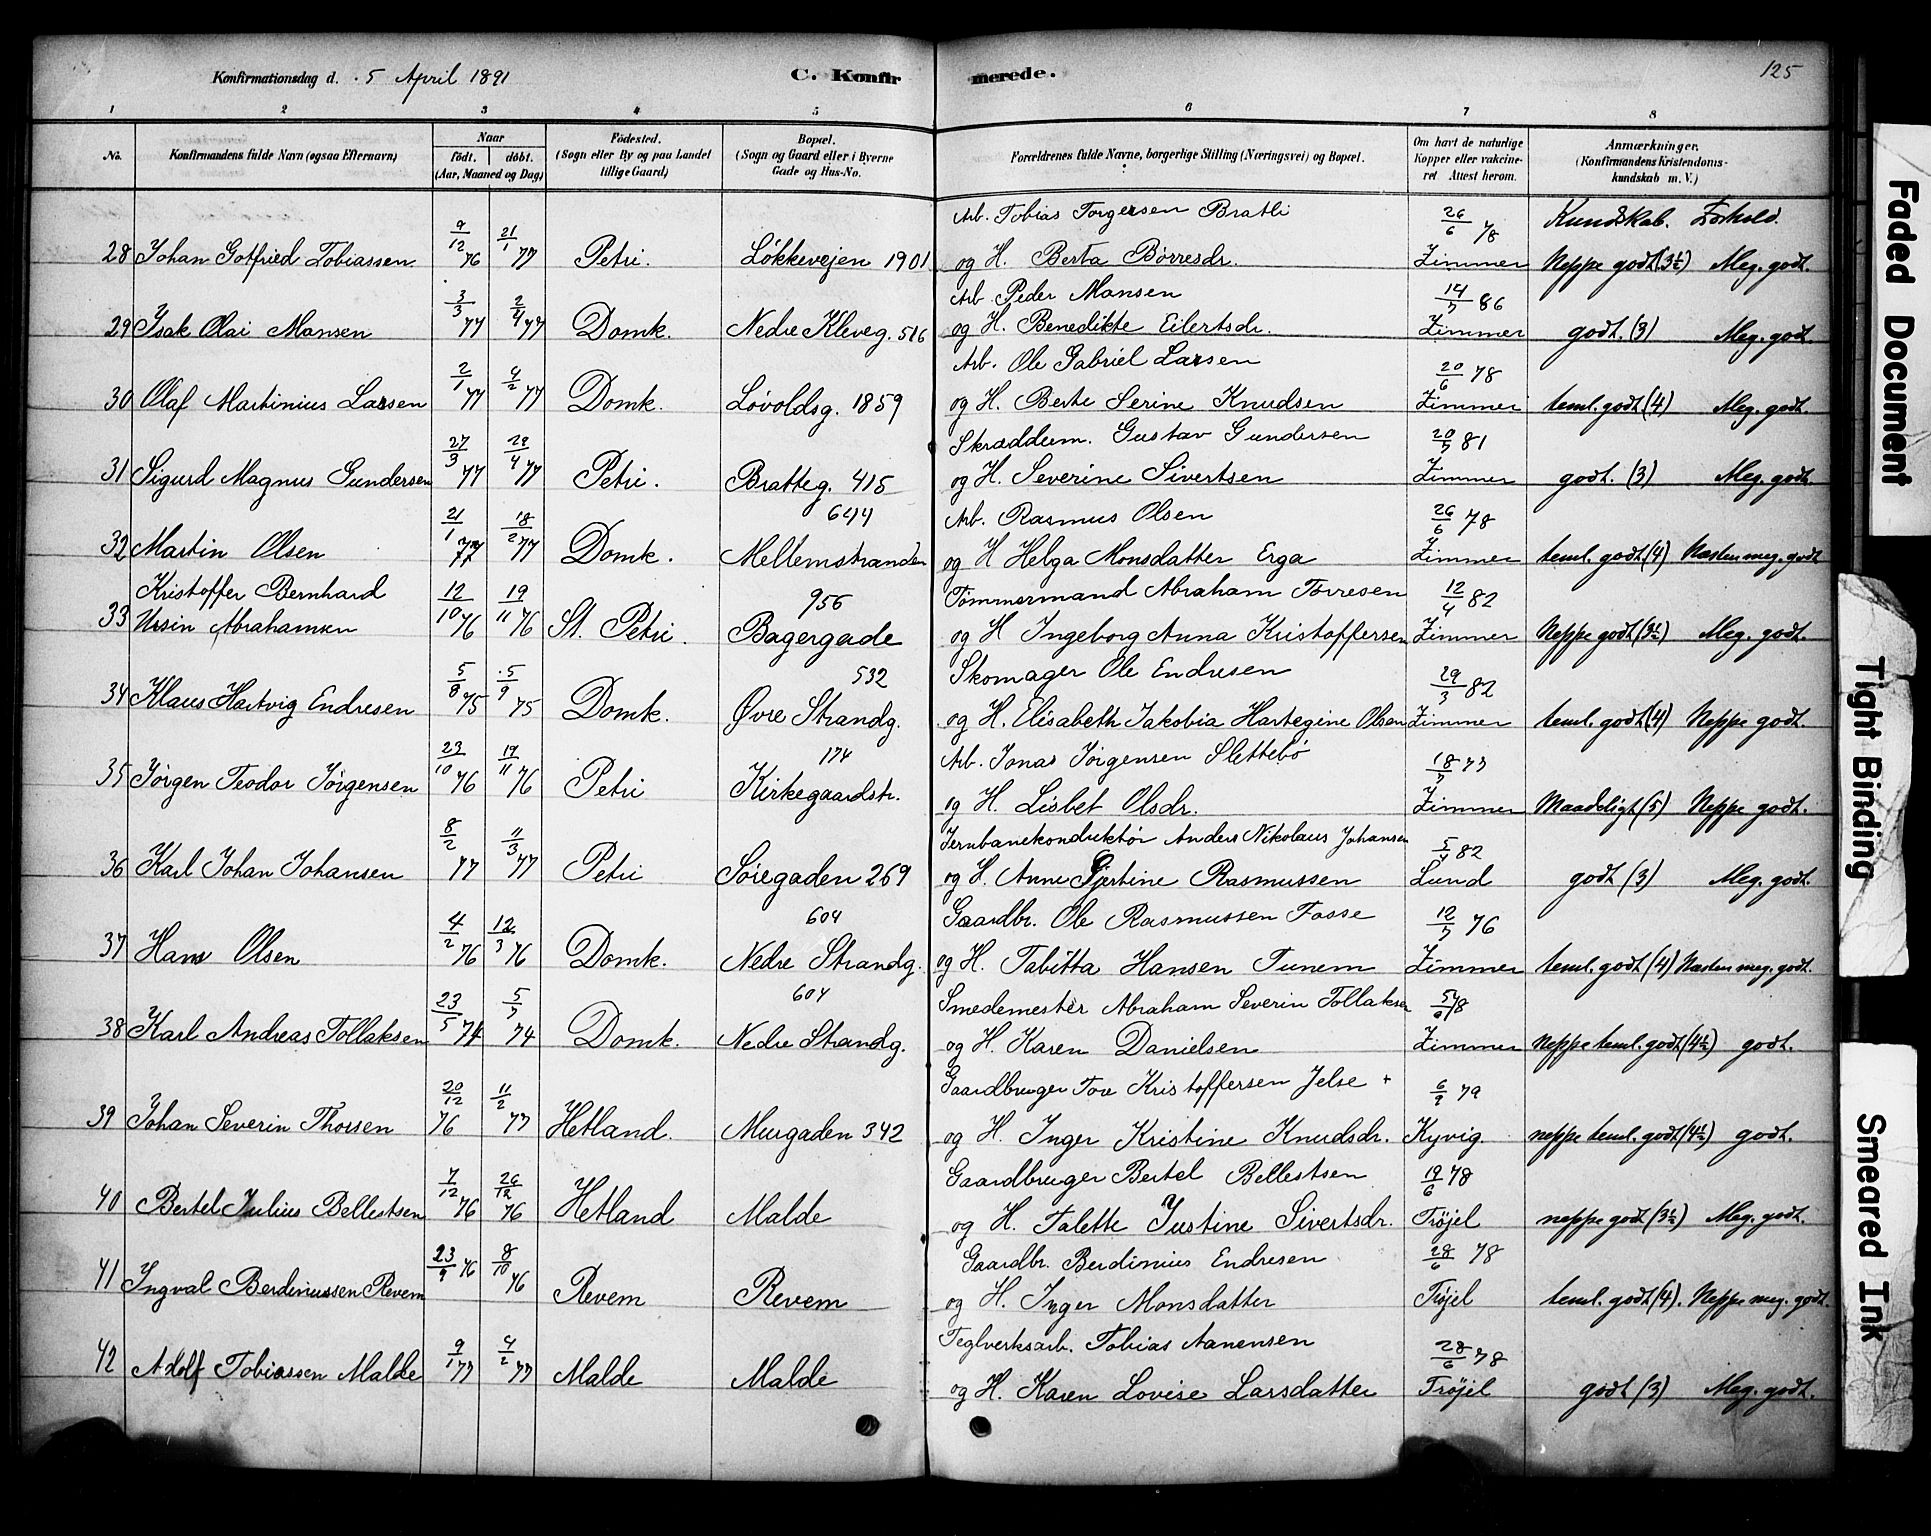 Konfirmationsdag d. 5 April 1891
C. Konfirmerede.
125
1 2 3 4 5 6 7 8
No.
Konfirmandens fulde Navn (ogsaa Efternavn)
Naar
födt. döbt.
(Aar, Maaned og Dag)
Födested.
(Sogn eller By og paa Landet
tillige Gaard)
Bopæl.
(Sogn og Gaard eller i Byerne
Gade og Hus-No.
Forældrenes fulde Navne, borgerlige Stilling (Næringsvei) og Bopæl.
Om havt de naturlige
Kopper eller vakcine-
ret Attest herom.
Anmærkninger.
(Konfirmandens Kristendoms-
kundskab m. V.)
Kundskab. Forhold.
Arb. Tobias Torgersen Bratli 26/6 78
28 Johan Gotfried Tobiassen 9/12 76 21/1 77 Petri. Løkkevejen 1901 og H. Berta Børresdr. Zimmer Neppe godt (3½) Meg. godt.
Arb. Peder Mansen 14/7 86
29 Isak Olai Mansen 3/3 77 2/4 77 Domk. Nedre Kleveg. 516 og H. Benedikte Eilertsdr. Zimmer godt. (3) Meg. godt.
Arb. Ole Gabriel Larsen 20/6 78
30 Olaf Martinius Larsen 2/1 77 4/2 77 Domk. Løvoldsg. 1859 og H. Berte Serine Knudsen Zimmer teml. godt (4) Meg. godt.
Skræddem. Gustav Gundersen 20/7 81
31 Sigurd Magnus Gundersen 27/3 77 29/4 77 Petri. Bratteg. 415 og H. Severine Sivertsen Zimmer godt. (3) Meg. godt.
644 Arb. Rasmus Olsen 26/6 78
32 Martin Olsen 21/1 77 18/2 77 Domk. Mellemstranden og H Helga Monsdatter Erga Zimmer teml. godt (4) Næsten meg. godt
Kristoffer Bernhard 956 Tømmermand Abraham Torresen 12/4 82
33 Ursin Abrahamsen 12/10 76 19/11 76 St. Petri. Bagergade og H Ingeborg Anna Kristoffersen Zimmer Neppe godt (3½) Meg. godt.
532 Skomager Ole Endresen 29/3 82
34 Klaus Hartvig Endresen 5/8 75 5/9 75 Domk. Øvre Strandg. og H. Elisabeth Jakobia Hartegine Olsen Zimmer teml. godt (4) Neppe godt.
174 Arb. Jonas Jørgensen Slettebø 18/7 77
35 Jørgen Teodor Jørgensen 23/10 76 19/11 76 Petri Kirkegaardstr. og H. Lisbet Olsdr. Zimmer Maadeligt (5) Neppe godt.
Jernbanekonduktör Anders Nikolaus Johansen 5/4 82
36 Karl Johan Johansen 8/2 77 11/3 77 Petri Søregaden 269 og H. Anne Gjertine Rasmussen Lund godt (3) Meg. godt.
604 Gaardbr. Ole Rasmussen Fosse 12/7 76
37 Hans Olsen 4/2 76 12/3 76 Domk. Nedre Strandg. og H. Tabitta Hansen Tunem Zimmer teml. godt (4) Næsten meg. godt.
604 Smedemester Abraham Severin Tollaksen 5/6 78
38 Karl Andreas Tollaksen 23/5 74 5/7 74 Domk. Nedre Strandg. og H. Karen Danielsen Zimmer Neppe teml. godt (4½) godt.
Gaardbruger Tore Kristoffersen Jelse + 6/9 79
39 Johan Severin Thorsen 20/12 76 11/2 77 Hetland. Murgaden 342 og H. Inger Kristine Knudsdr. Kyvig. neppe teml. godt (4½) godt.
Gaardbruger Bertel Bellestsen 19/6 78
40 Bertel Julius Bellestsen 7/12 76 26/12 76 Hetland Malde og H. Talette Justine Sivertsdr. Trøjel neppe godt (3½) Meg. godt.
Gaardbr. Berdinius Endresen 28/6 78
41 Ingval Berdiniussen Revem 23/9 76 8/10 76 Revem Revem og H. Inger Monsdatter Trøjel teml. godt (4). Neppe meg. godt.
Teglverksarb. Tobias Aanensen 28/6 78
42 Adolf Tobiassen Malde 9/1 77 4/2 77 Malde Malde og H. Karen Lovise Larsdatter Trøjel godt (3) Meg. godt.
Faded Document
Tight Binding
Smeared Ink